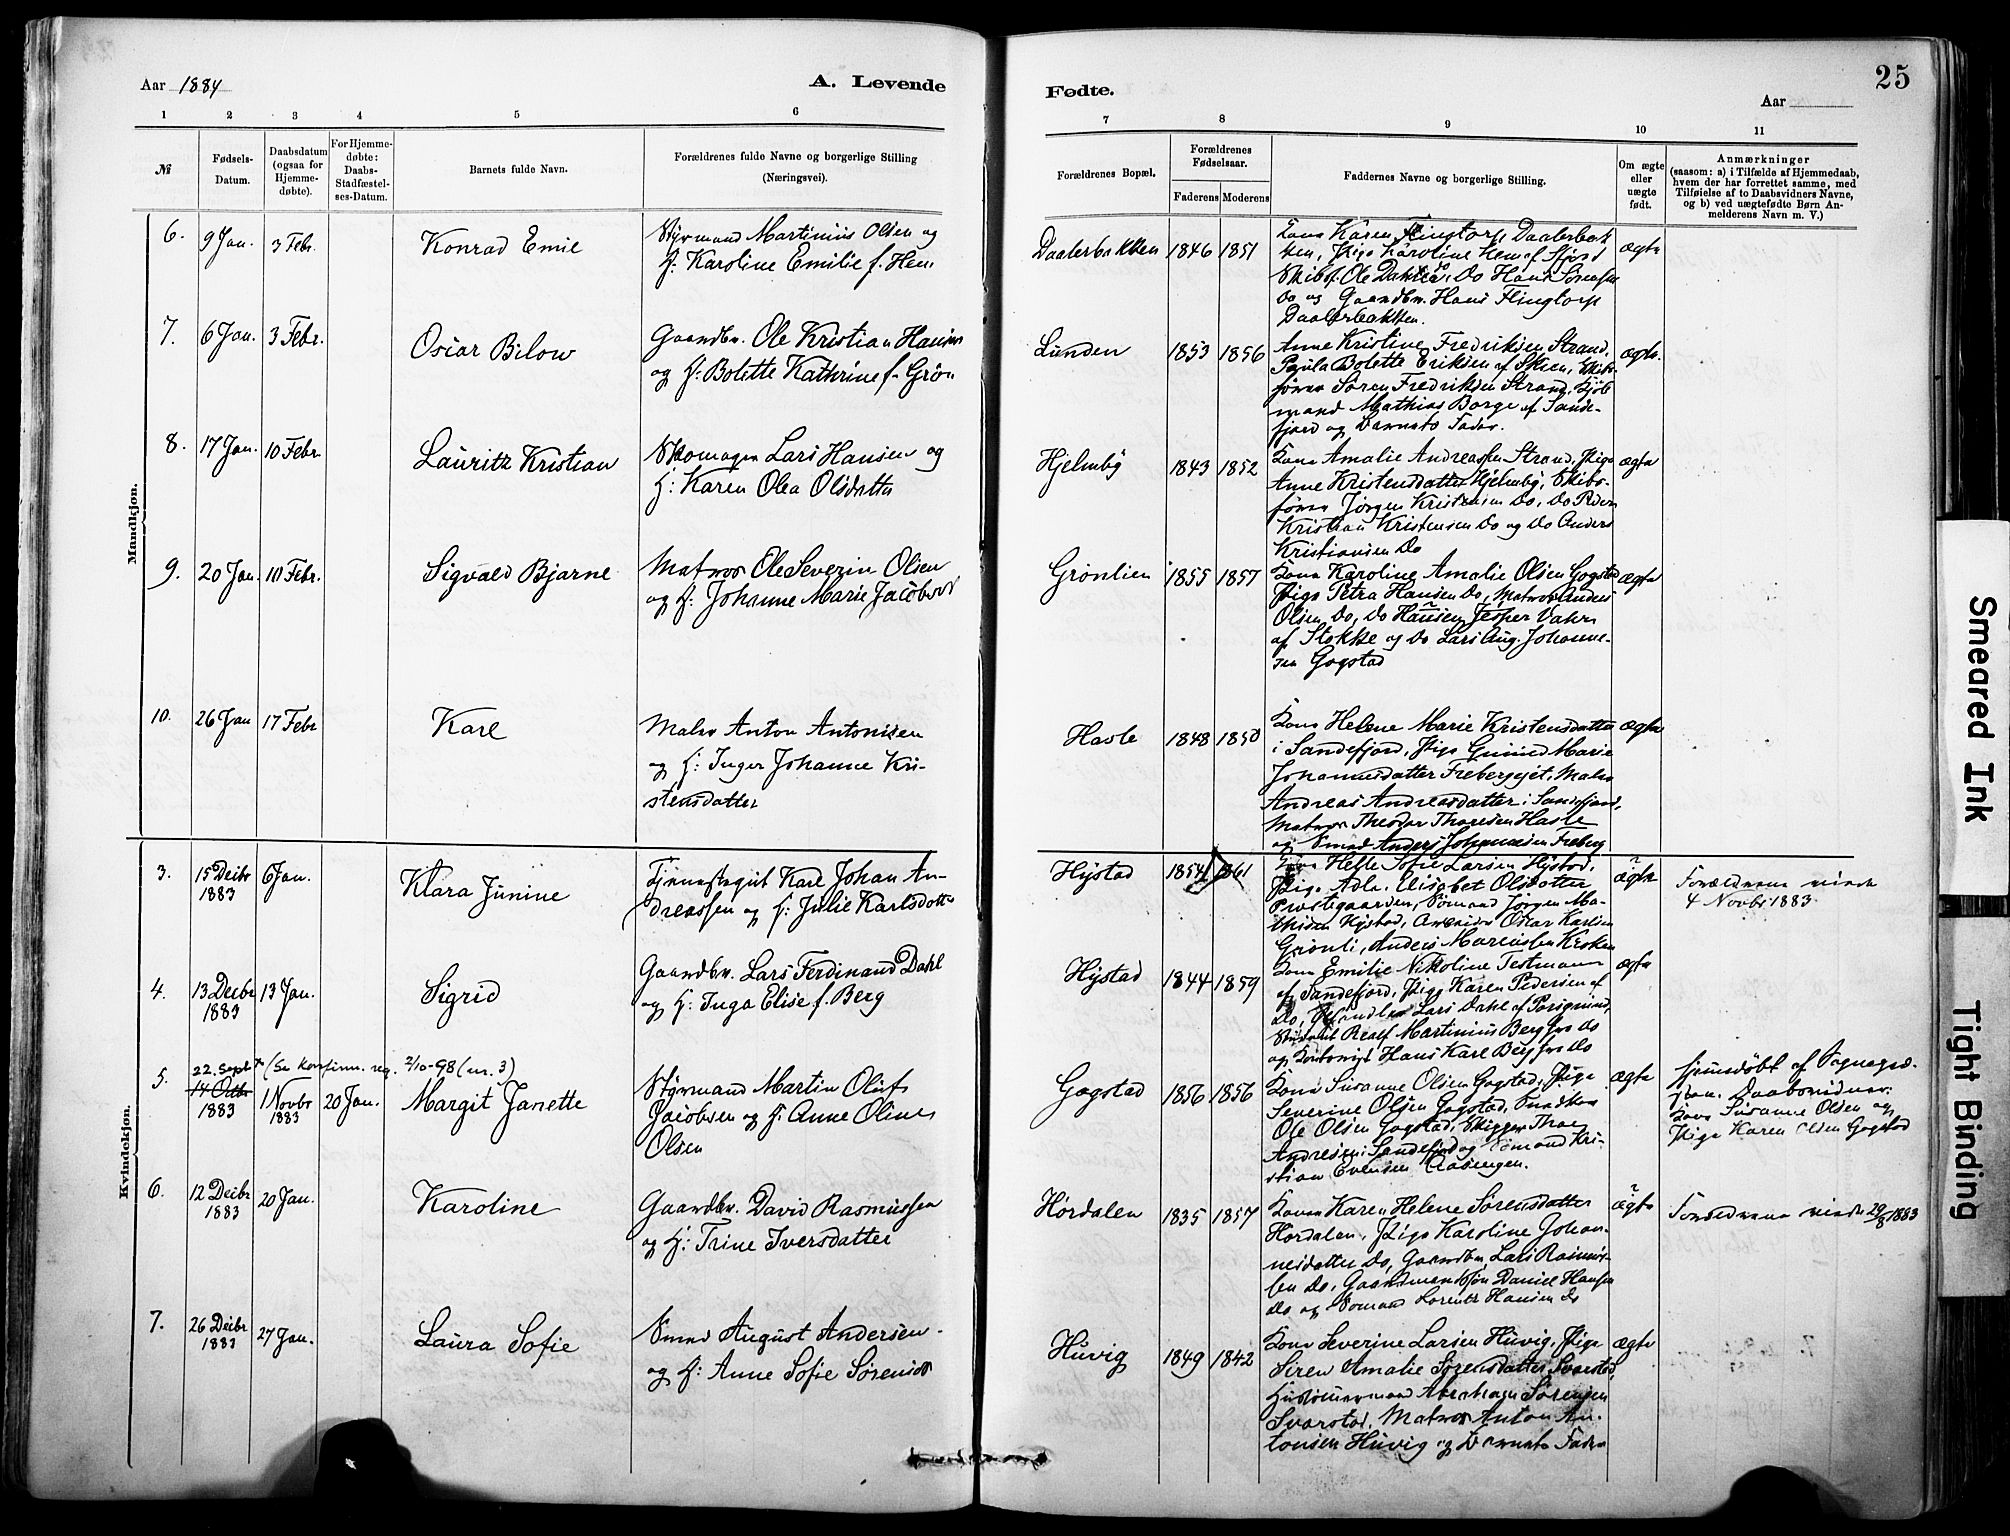 Aar 1884
A. Levende
Fødte.
Aar
25
1 2 3 4 5 6 7 8 9 10 11
№
Fødsels-
Datum.
Daabsdatum
(ogsaa for
Hjemme-
døbte).
For Hjemme-
døbte:
Daabs-
Stadfæstel-
ses-Datum.
Barnets fulde Navn.
Forældrenes fulde Navne og borgerlige Stilling
(Næringsvei).
Forældrenes Bopæl.
Forældrenes
Fødselsaar.
Faderens Moderens
Faddernes Navne og borgerlige Stilling.
Om ægte
eller
uægte
født.
Anmærkninger
(saasom: a) i Tilfælde af Hjemmedaab,
hvem der har forrettet samme, med
Tilføielse af to Daabsvidners Navne,
og b) ved uægtefødte Børn An-
melderens Navn m. V.)
Mandkjøn.
6. 9 Jan. 3 Febr. Konrad Emil
Styrmand Martinius Olsen og
H: Karoline Emilie f.
Daalerbakken 1846 1851
Kona Karen Flingtorp Daalerbak
ken, Pige Karoline
Skibsf. Ole Dahl Do Hans Sørensen
Do og Gaardbr. Hans Flingtorp
Daalerbakken.
ægte
7. 6 Jan. 3 Febr. Oscar Bilow
Gaardbr. Ole Kristian Hansen
og H: Bolette Kathrine f. Grøn
Lunden 1853 1856
Anne Kristine Fredriksen Strand,
Paula Bolette Eriksen af Skien, Skibs-
fører Søren Fredriksen Strand, Kjøb
mand Mathias Borge af Sande-
fjord og Barnets Fader.
ægte
8. 17 Jan. 10 Febr. Lauritz Kristian
Skomager Lars Hansen og
H: Karen Olea Olsdatter
Hjelmbø 1843 1852
Kona Amalie Andreassen Strand, Pige
Anne Kristensdatter Hjelmbø, Skibs-
fører Jørgen Kristensen Do, Do Peder
Kristian Kristensen Do og Do Anders
Kristiansen Do
ægte
9. 20 Jan. 10 Febr. Sigvald Bjarne
Matros Ole Severin Olsen
og H: Johanne Marie Jacobsd
Grønlien 1855 1857
Kona Karoline Amalie Olsen Gogstad
Pige Petra Hansen Do, Matros Anders
Olsen Do, Do Hansen Jesper
af Stokke og Do Lars Aug. Johanne-
sen Gogstad
ægte
10. 26 Jan 17 Febr Karl
Maler Anton Antonisen
og H: Inger Johanne Kri-
stensdatter
Hasle 1848 1850
Kona Helene Marie Kristensdatter
i Sandefjord, Pige Gunild Marie
Johannesdatter Frebergejet, Maler
Andreas Andreasdatter i Sandefjord,
Matros Theodor Thoresen Hasle
og Smed Anders Johannesen Freberg
ægte
Kvindekjøn.
3. 15 Decbr
1883
6 Jan. Klara Junine
Karl Johan An-
dreassen og H: Julie Karlsdotter
Hystad 1854 1861
Kona Helle Sofie Larsen Hystad,
Pige Adla Elisabet Olsdatter
Præstegaarden, Sømand Jørgen Ma-
thisen Hystad, Arbeider Oscar Karlsen
Grønli, Anders Martinsen
ægte
Forældrene viede
4 Novbr 1883
4. 13 Decbr
1883
13 Jan. Sigrid
Gaardbr. Lars Ferdinand Dahl
og H: Inga Elise f. Berg
Hystad 1844 1859
Kona Emilie Nikoline Testmann
af Sandefjord, Pige Karen Pedersen af
Do, Handler Lars Dahl af Porsgrund,
Student Realf Martinius Berg fra Do
og Kontorist Hans Karl Berg fra Do
ægte
5. 22. Sept (Se konfirm. reg. 2/10-98 (nr. 3)
14 Octbr
1883
1 Novbr
1883
20 Jan. Margit Janette
Styrmand Martin Oluf
Jacobsen og H: Anne Oline
Olsen
Gogstad 1856 1856
Kona Susanne Olsen Gogstad, Pige
Severine Olsen Gogstad, Snedker
Ole Olsen Gogstad, Skipper Thor
Andresen i Sandefjord og Sømand Kri-
stian Evensen Aasengen.
ægte
Hjemdøbt af Sognepræ-
sten. Daabsvidner:
Kona Susanne Olsen og
Pige Karen Olsen Gogstad
6. 12 Decbr
1883
20 Jan. Karoline
Gaardbr. David Rasmussen
og H: Trine Iversdatter
Hørdalen 1835 1857
Kona Karen Helene Sørensdatter
Hørdalen, Pige Karoline Johan-
nesdatter Do, Gaardbr. Lars Rasmus-
sen Do, Gaardmandssøn Daniel Hansen
Do og Sømand Lorentz Hansen Do
ægte
Forældrene viede 29/8 1883
7. 26 Decbr
1883
27 Jan. Laura Sofie
Smed August Andersen
og H: Anne Sofie Sørensd
Huvig 1849 1842
Kona Severine Larsen Huvig, Pige
Siren Amalie Sørensdatter Svarstad,
Husmand Abraham Sørensen
Svarstad, Matros Anton An-
tonsen Huvig og Barnets Fader
ægte
Smeared Ink
Tight Binding